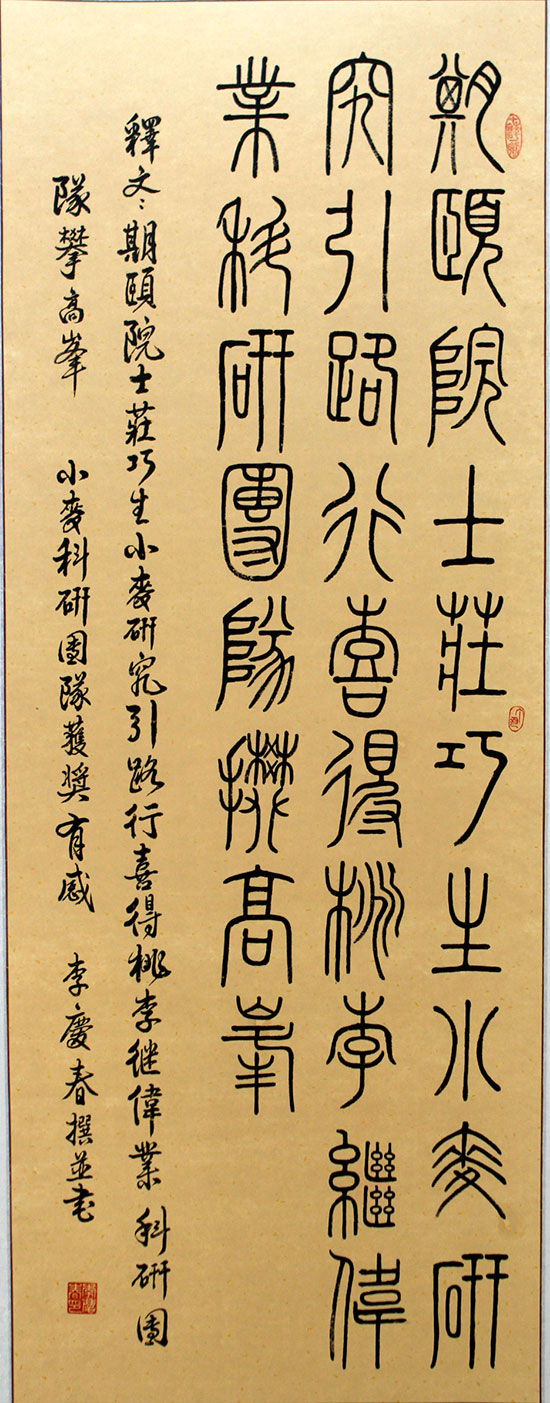 期頤院士莊巧生小麥研
究引路行喜得桃李繼偉
業科研團隊攀高峯
釋文：期頤院士莊巧生小麥研究引路行喜得桃李継偉業科研團
隊攀高峯 小麥科研團隊獲奬有感 李慶春撰並書